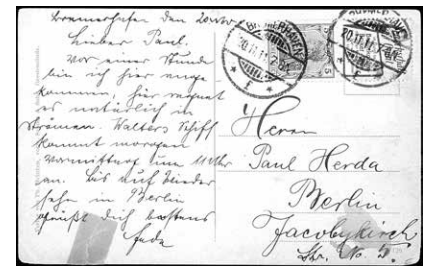 Bremerhafen den 20
Lieber Paul,
vor einer Stunde
bin ich hier ange
kommen, hier regnet
es natürlich in
Strömen. Walters Schiff
kommt morgen
vormittag um 11 Uhr
an. Bis auf Wieder
sehn in Berlin
grüßt dich bestens
BREMERHAVEN
20.11.11
5
20.11.11
Herrn
Paul Herda
Berlin
Jacobykirch
Str. No. 5.